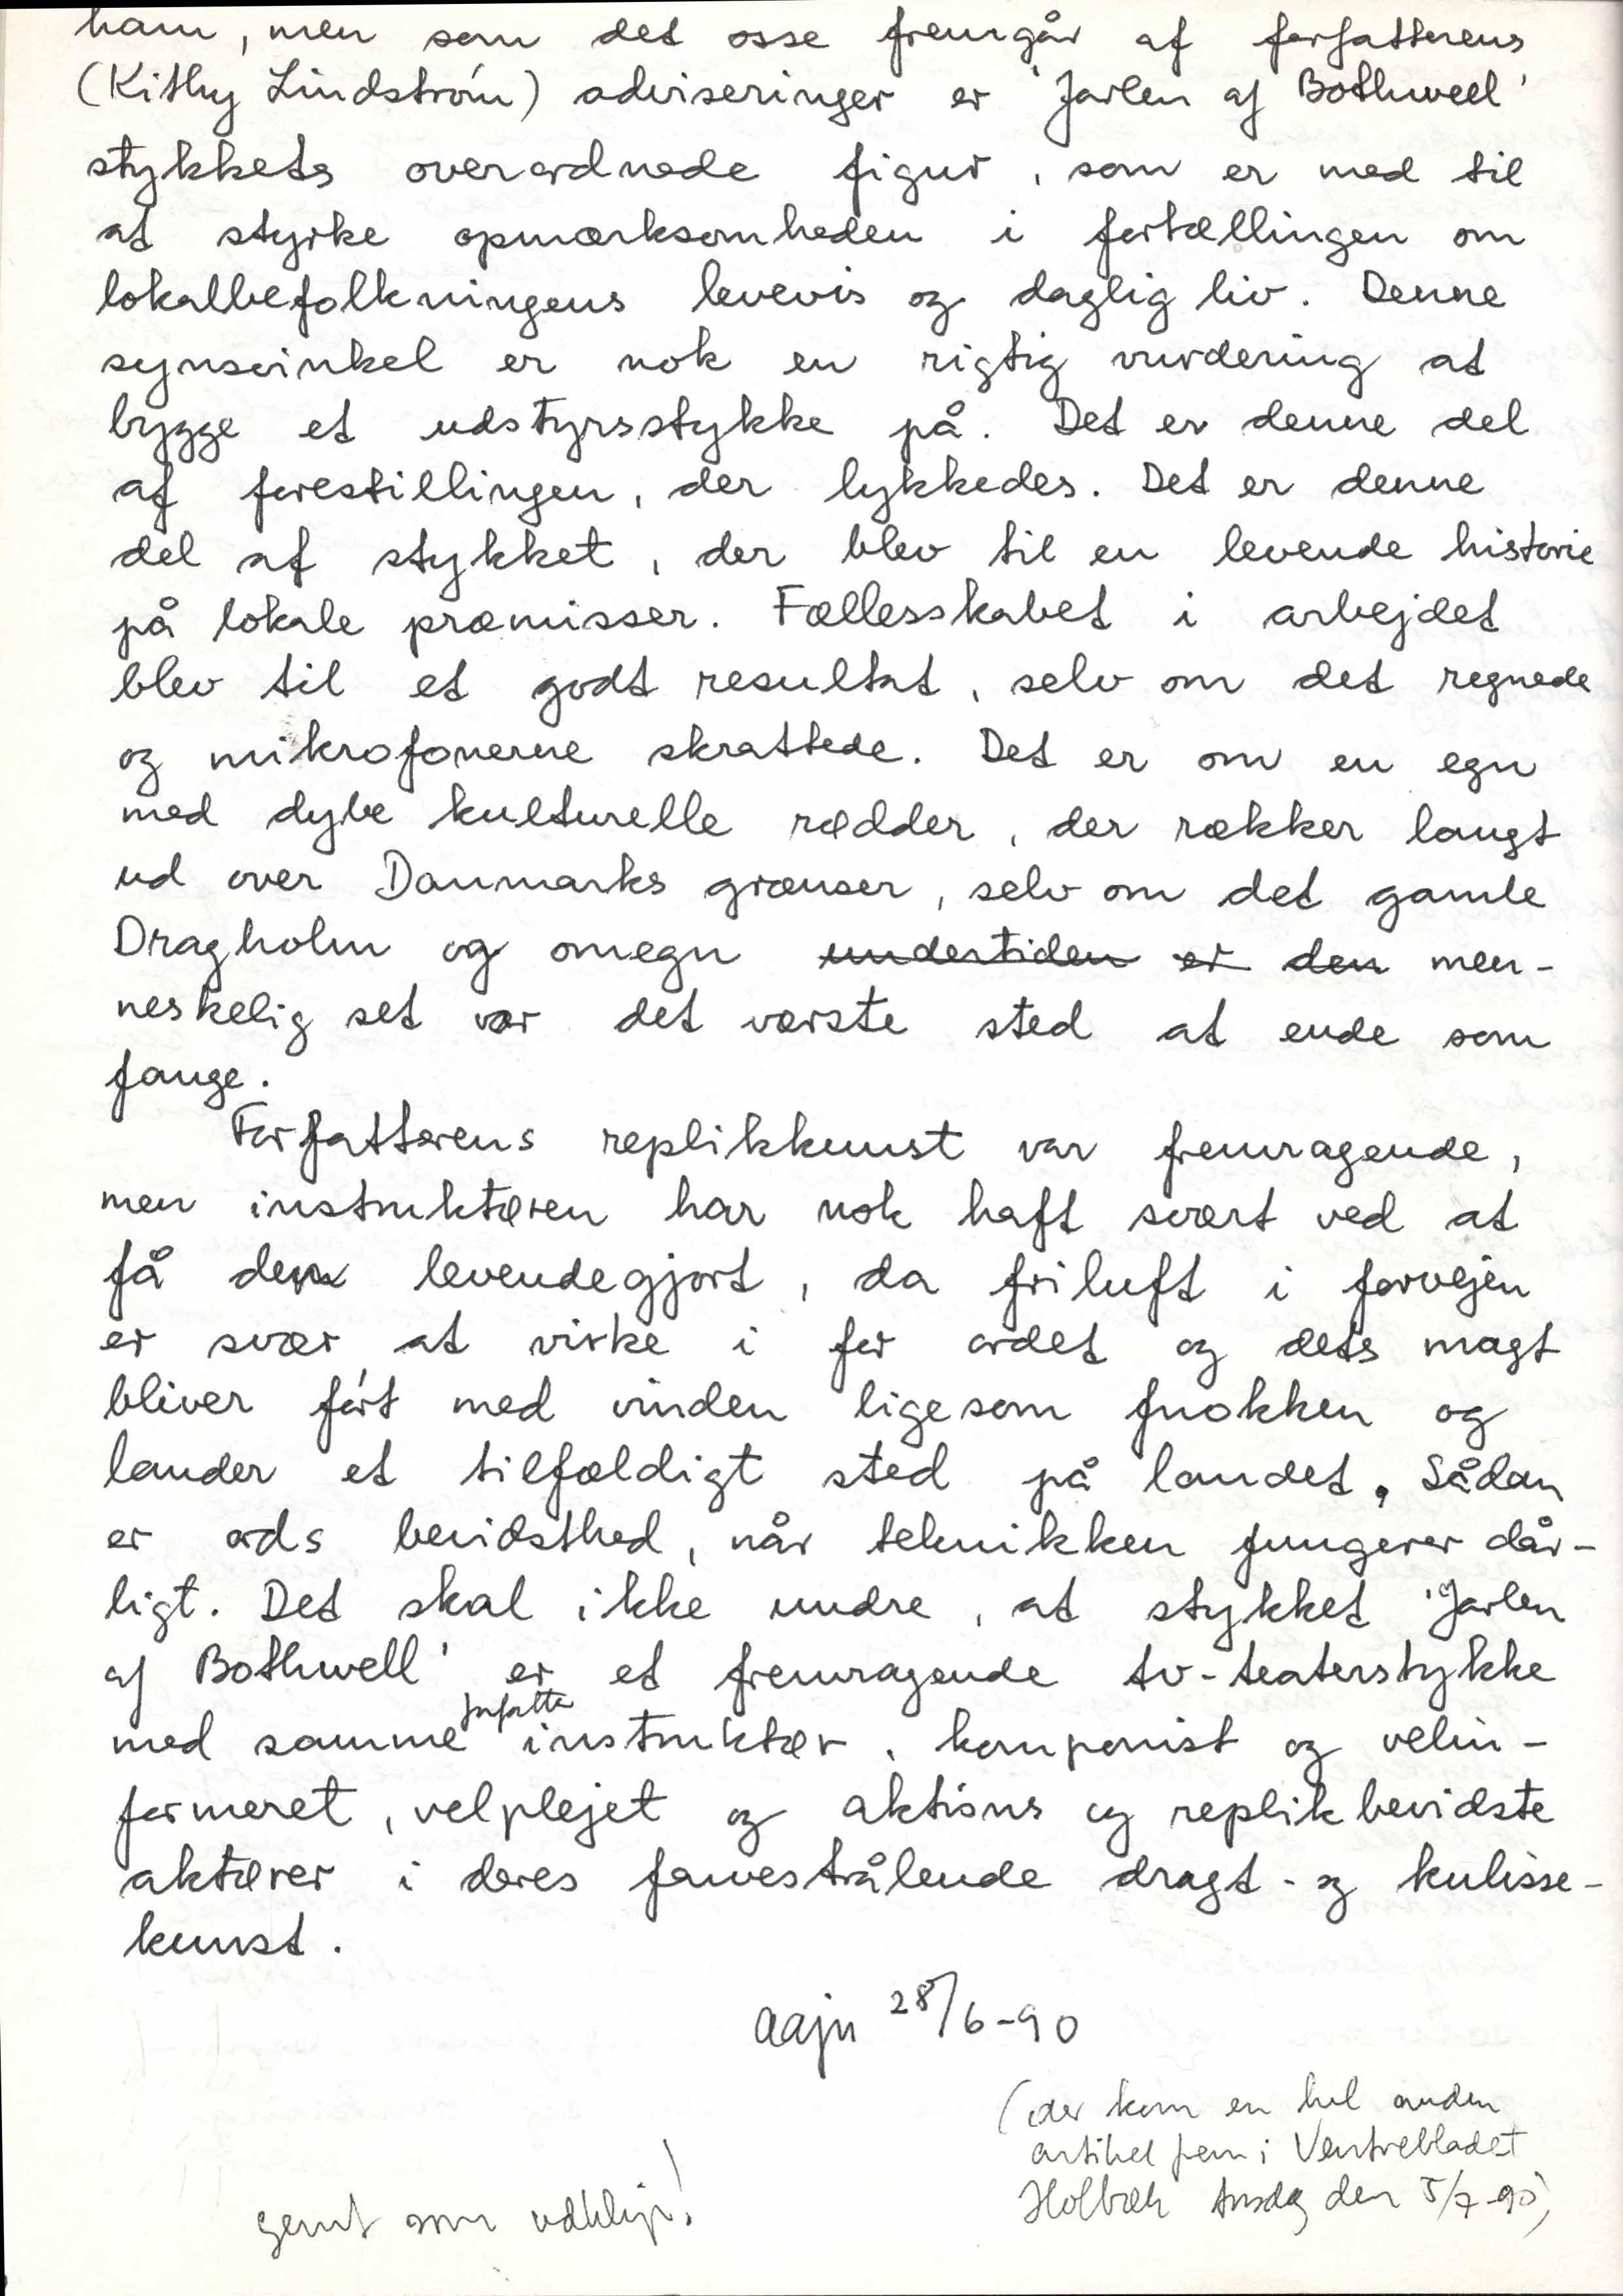 ham, men som det osse fremgår af forfatterens
(Kithy Lindstrøm) adviseringer er 'Jarlen af Bothwell'
stykkets overordnede figur, som er med til
at styrke opmærksomheden i fortællingen om
lokalbefolkningens levevis og daglig liv. Denne
synsvinkel er nok en rigtig vurdering at
bygge et udstyrsstykke på. Det er denne del
af forestillingen, der lykkedes. Det er denne
del af stykket, der blev til en levende historie
på lokale præmisser. Fællesskabet i arbejdet
blev til et godt resultat, selv om det regnede
og mikrofonerne skrattede. Det er om en egn
med dybe kulturelle rødder, der rækker langt
ud over Danmarks grænser, selv om det gamle
Dragholm og omegn undertiden er den men-
neskelig set var det værste sted at ende som
fange.
Forfatterens replikkunst var fremragende,
men instruktøren har nok haft svært ved at
få den levendegjort, da friluft i forvejen
er svær at virke i for ordet og dets magt
bliver ført med vinden ligesom fnokken og
lander et tilfældigt sted på landet. Sådan
er ords bevidsthed, når teknikken fungerer dår-
ligt. Det skal ikke undre, at stykket 'Jarlen
af Bothwell' er et fremragende tv-teaterstykke
forfatter
med samme instruktør, komponist og velin-
formeret, velplejet og aktions og replikbevidste
aktører i deres farvestrålende dragt- og kulisse-
kunst.
aaju 28/6-90
(der kom en hel anden
artikel frem i Venstrebladet
Holbæk torsdag den 5/7-90)
gemt som udklip!